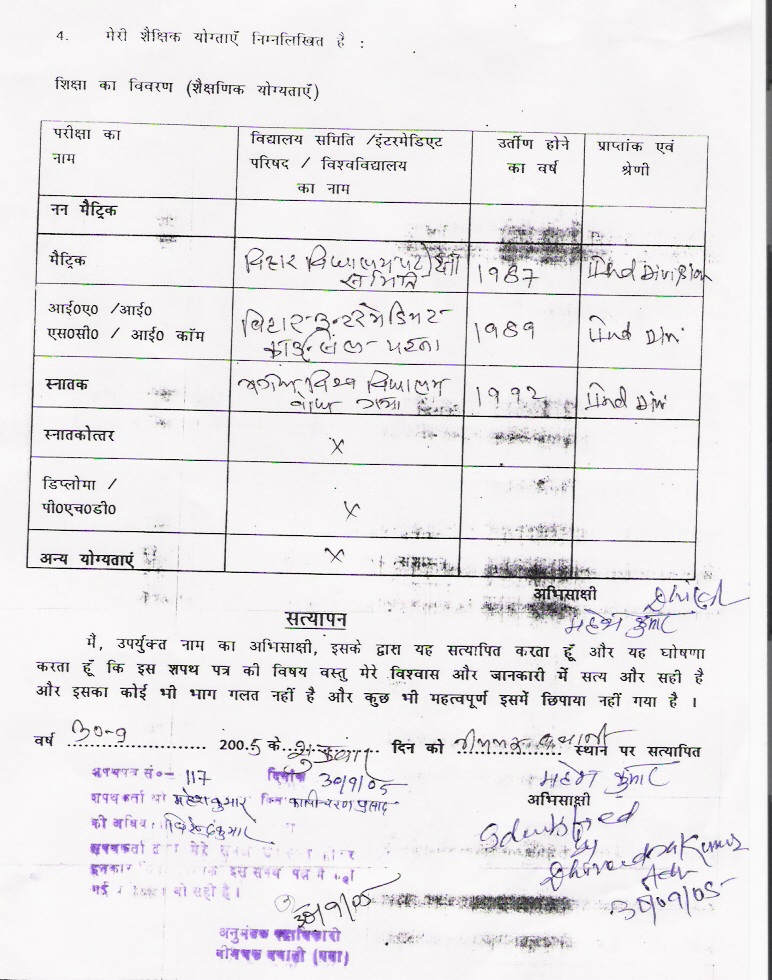 4. मेरी शैक्षिक योग्ताएँ निम्नलिखित है :
शिक्षा का विवरण (शैक्षणिक योग्यताएँ)
परीक्षा का नाम विद्यालय समिति /इंटरमेडिएट परिषद / विश्वविद्यालय का नाम उर्तीण होने का वर्ष प्राप्तांक एवं श्रेणी
नन मैट्रिक
मैट्रिक बिहार विद्यालय परीक्षा समिति 1987 IInd Division
आई०ए० /आई० एस०सी० / आई० कॉम बिहार इन्टरमेडियट काउन्सिल पटना 1989 IInd Div
स्नातक मगध विश्व विद्यालय बोध गया 1992 IInd Div
स्नातकोत्तर X
डिप्लोमा / पी०एच०डी० X
अन्य योग्यताएँ X
अभिसाक्षी
महेश कुमार
सत्यापन
मै, उपर्युक्त नाम का अभिसाक्षी, इसके द्वारा यह सत्यापित करता हूँ और यह घोषणा
करता हूँ कि इस शपथ पत्र की विषय वस्तु मेरे विश्वास और जानकारी में सत्य और सही है
और इसका कोई भी भाग गलत नहीं है और कुछ भी महत्वपूर्ण इसमें छिपाया नहीं गया है ।
वर्ष 30-9 2005 के शुक्रवार दिन को नीमचक बथानी स्थान पर सत्यापित
शपथपत्र सं०- 117 दिनांक 30/9/05 महेश कुमार
शपथकर्ता श्री महेश कुमार पिता काली चरण प्रसाद अभिसाक्षी
Identified
by
Dhirendra Kumar
Adv
30/09/05
30/9/05
अनुमंडल पदाधिकारी
नीमचक बथानी (गया)